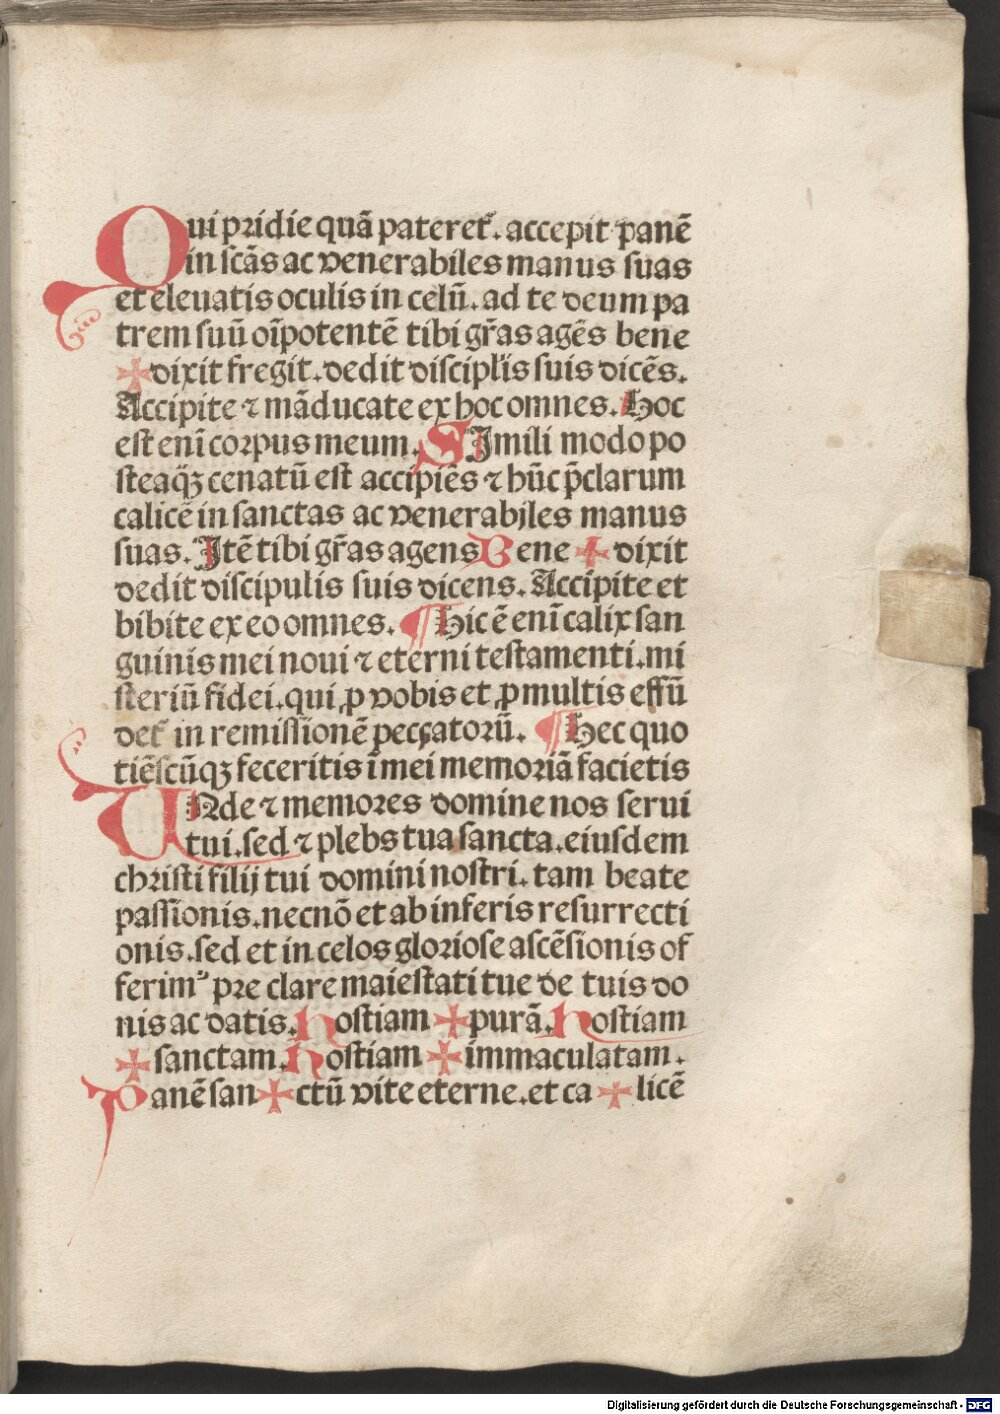 Qui pridie quā pateret᷑. accepit panē
in scās ac venerabiles manus suas
et eleuatis oculis in celū. ad te deum pa
trem suū oīpotentē tibi gr̄as agēs bene
✠dixit fregit. dedit discipl̓is suis dicēs.
Accipite ⁊ māducate ex hoc omnes. Hoc
est enī corpus meum. SImili modo po
steaqꝫ cenatū est accipiēs ⁊ hūc p̄clarum
calicē in sanctas ac venerabiles manus
suas. Itē tibi gr̄as agens Bene ✠ dixit
dedit discipulis suis dicens. Accipite et
bibite ex eo omnes. ¶ Hic ē enī calix san
guinis mei noui ⁊ eterni testamenti. mi
steriū fidei. qui ꝓ vobis et ꝓ multis effū
det᷑ in remissionē peccatorū. ¶ Hec quo
tiēscūqꝫ feceritis ī mei memoriā facietis
UNde ⁊ memores domine nos serui
tui. sed ⁊ plebs tua sancta. eiusdem
christi filij tui domini nostri. tam beate
passionis. necnō et ab inferis resurrecti
onis. sed et in celos gloriose ascēsionis of
ferimꝰ pre clare maiestati tue de tuis do
nis ac datis. hostiam ✠ purā. hostiam
✠ sanctam. hostiam ✠ immaculatam.
Panē san ✠ ctū vite eterne. et ca ✠ licē
Digitalisierung gefördert durch die Deutsche Forschungsgemeinschaft - DFG